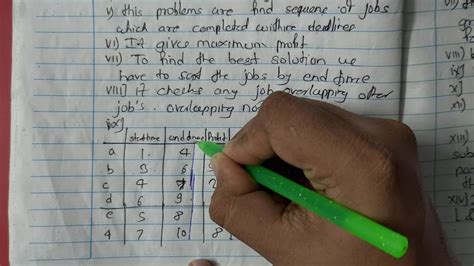 v) this problems are find sequence of jobs
which are completed within deadlines
vi) It gives maximum profit
vii) To find the best solution we
have to sort the jobs by end time
viii) it checks any job overlapping other
job's. overlapping no
ix)
start time end time Profit
a 1 4
b 3 6
c 4 7 2
d 6 9
e 5 8
4 7 10 8
vii)
viii)
ix)
x)
xi)
xii)
xiii)
xiv)